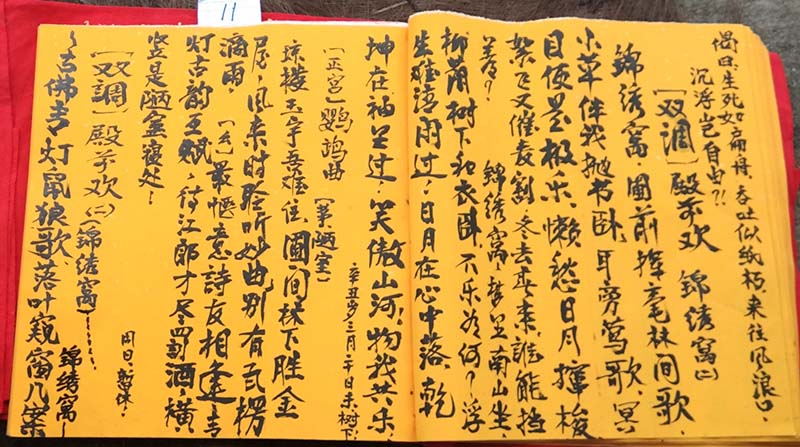 11
偈曰:生死如扁舟,吞吐似纸朽,来往风浪口,
沉浮岂自由?!
[双调]殿前欢 锦绣窝(二)
锦绣窝,圃前挥毫林间歌,
小草伴我抛书卧,耳旁莺歌,冥
目便是极乐,懒愁日月撺梭
絮飞又催麦割,冬去春来,谁能挡
着? 锦绣窝,暂且南山坐,
柳荫树下和衣卧,不乐为何?浮
生难 过,日月在心中落,乾
坤在袖里过,笑傲山河,物我共乐,
辛丑岁三月二十日 树下
[正宫]鹦鹉曲 [美陋室]
琼楼玉宇吾难住,圃间秫下胜金
屋,风来时聆听妙曲,别有瓦楞
滴雨,[幺]最惬意诗友相逢,
灯古韵互赋,待江郎才尽 酒,横
竖是陋室 处,
[双調]殿前欢(二)(锦绣窝)
同日,
锦绣窝~
~古佛青灯鼠狼歌,落叶窥窗几案